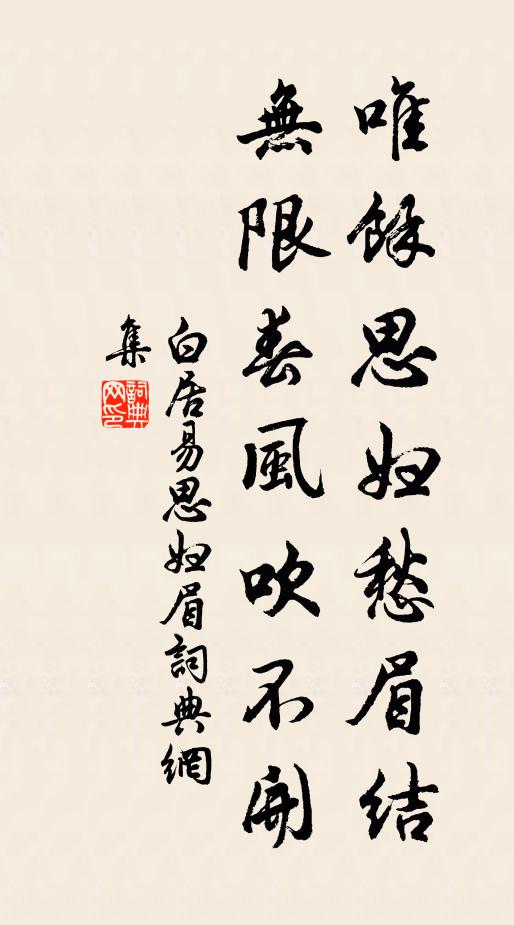 唯餘思婦愁眉結
無限春風吹不開
白居易思婦眉詞典網
集
詞典網印